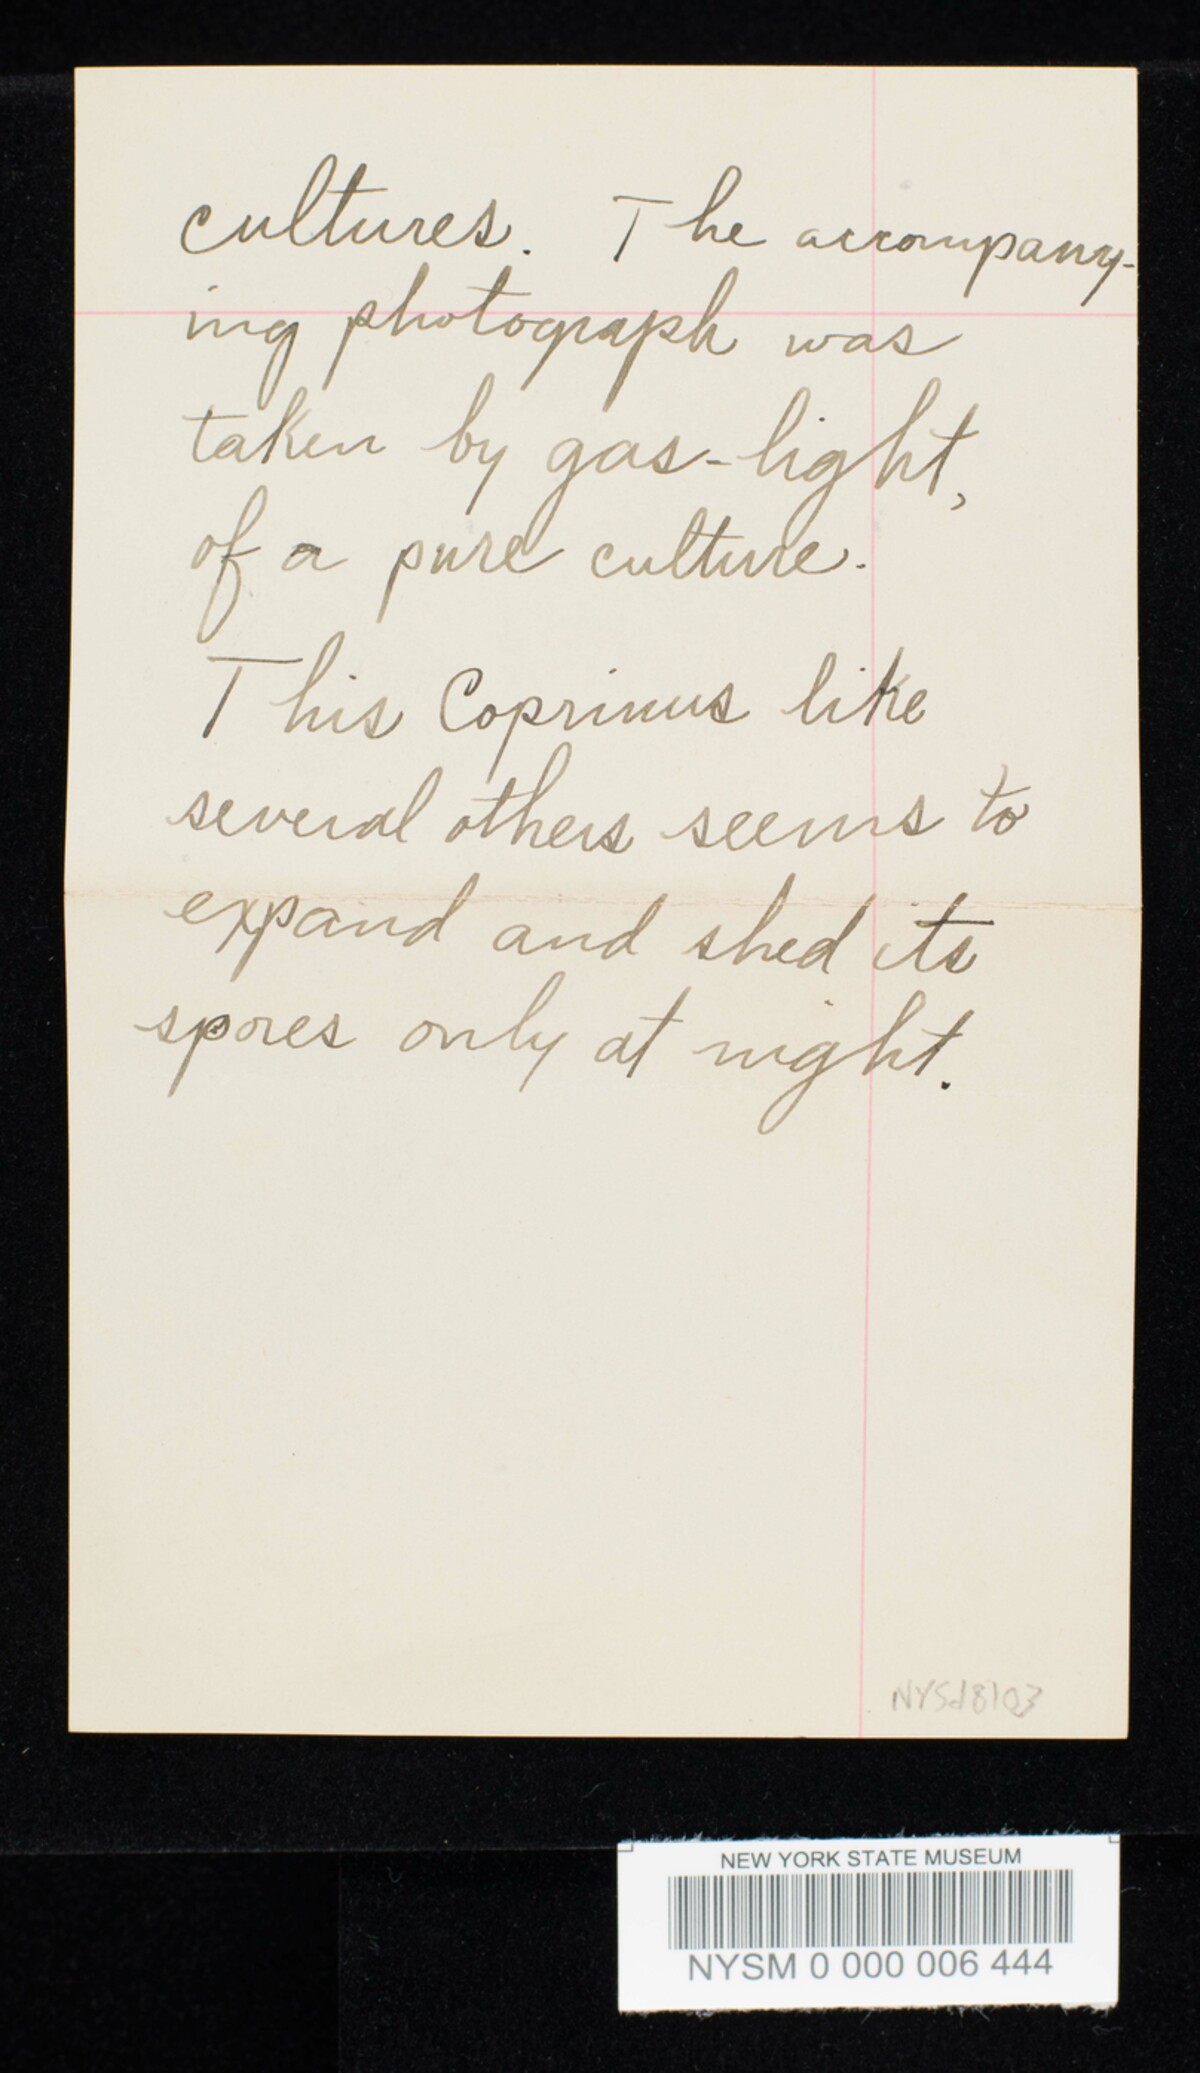 cultures. The accompany-
ing photograph was
taken by gas-light,
of a pure culture.
This Coprinus like
several others seems to
expand and shed its
spores only at night.
NYSd8103
NEW YORK STATE MUSEUM
NYSM 0 000 006 444